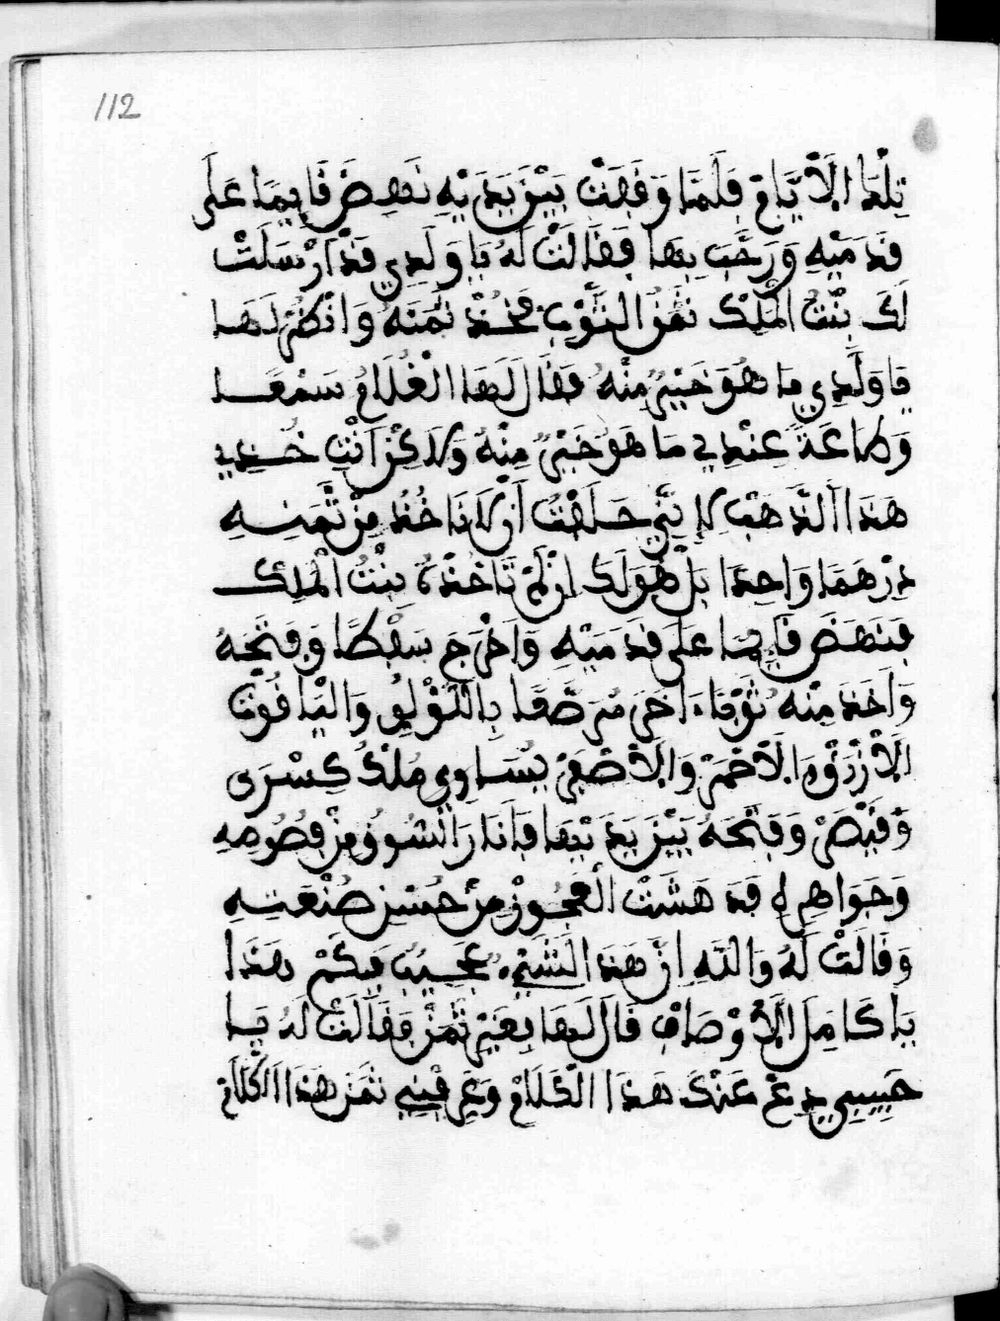 112
تِلْكَ الْأَيَّامِ فَلَمَّا وَقَفَتْ بَيْنَ يَدَيْهِ نَهَضَ قَايِمًا عَلَى
قَدَمَيْهِ وَرَحَّبَ بِهَا فَقَالَتْ لَهُ يَا وَلَدِي قَدْ اَرْسَلَتْ
لَكَ بِنْتُ الْمَلِكْ ثَمَنُ الثَّوْبِ فَخُذْ ثَمَنَهُ وَانْظُرْ لَهَا
يَا وَلَدِي مَا هُوَ خَيْرٌ مِنْهُ فَقَالَ لَهَا الْغُلَامُ سَمْعًا
وَطَاعَةً عِنْدِي مَا هُوَ خَيْرٌ مِنْهُ وَلَكِنْ اَنْتِ خُذِي
هَذَا الذَّهَبَ لِإِنَّنِي حَلَفْتُ أَنْ لَا نَاخُذْ مِنْ ثَمَنِهِ
دِرْهَمًا وَاحِدًا بَلْ هُوَ لَكِ اِنْ لَمْ تَاخُذْهُ بِنْتُ الْمَلِكْ
فَنَهَضَ قَايِمًا عَلَى قَدَمَيْهِ وَاَخْرَجَ سَبَطًا وَفَتَحَهُ
وَاَخَذَ مِنْهُ ثَوْبًا ءَاخَرَ مُرَصَّعًا بِاللُّؤْلُؤِ وَالْيَاقُوتِ
الْأَزْرَقْ وَالْأَحْمَرْ وَالْأَصْفَرْ يُسَاوِي مُلْكُ كِسْرَى
وَقَيْصَرْ وَفَتَحَهُ بَيْنَ يَدَيْهَا فَإِذَا رَا الشُّوُوْ مِنْ فُصُوصِهِ
وَجَوَاهِرِهِ قَدْ هَشَتْ الْعَجُوزْ مِنْ حُسْنِ صُنْعَتِهِ
وَقَالَتْ لَهُ وَاللَّهِ اِنَّ هَذَا الشَّيْءُ عَجِيبٌ فَبِكَمْ هَذَا
يَا كَامِلَ الْأَوْصَافِ قَالَ لَهَا بِغَيْرِ ثَمَنْ فَقَالَتْ لَهُ يَا
حَبِيبِي دَعْ عَنْكَ هَذَا الْكَلَامْ وَعَرِّفْنِي ثَمَنَ هَذَا الْكَلَامْ